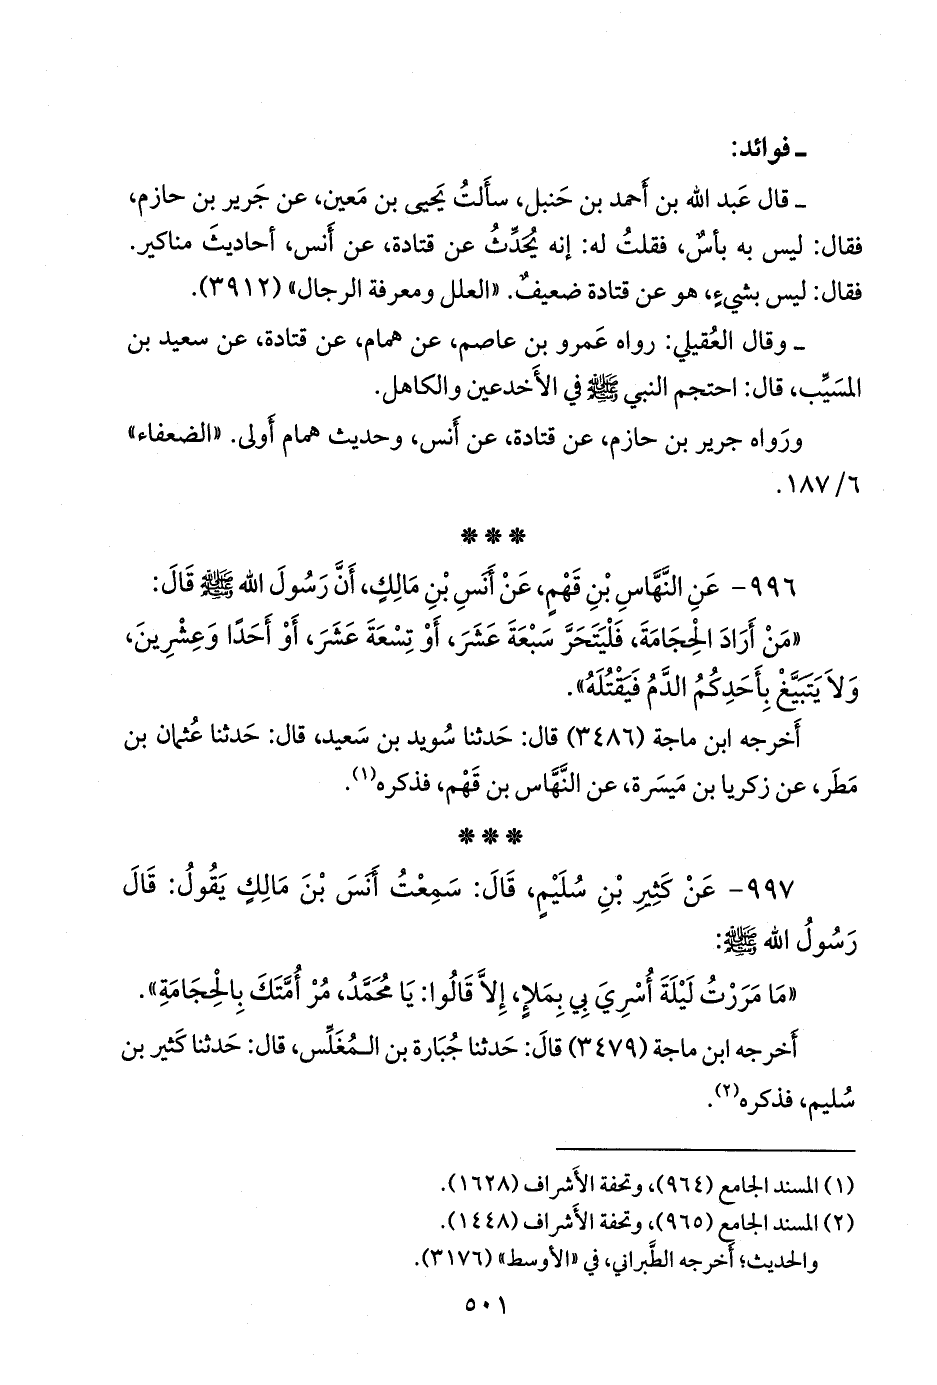 ـ فوائد:
ـ قال عَبد الله بن أَحمد بن حَنبل، سأَلتُ يَحيى بن مَعين، عن جَرير بن حازم،
فقال: ليس به بأسٌ، فقلتُ له: إنه يُحَدِّثُ عن قتادة، عن أَنس، أحاديثَ مناكير.
فقال: ليس بشيءٍ، هو عن قتادة ضعيفٌ. «العلل ومعرفة الرجال» (٣٩١٢).
ـ وقال العُقيلي: رواه عَمرو بن عاصم، عن همام، عن قتادة، عن سعيد بن
المسَيِّب، قال: احتجم النبي ﷺ في الأَخدعين والكاهل.
ورَواه جرير بن حازم، عن قتادة، عن أَنس، وحديث همام أَولى. «الضعفاء»
٦/ ١٨٧.
* * *
٩٩٦- عَنِ النَّهَّاسِ بْنِ قَهْمٍ، عَنْ أَنَسِ بْنِ مَالِكٍ، أَنَّ رَسُولَ الله ﷺ قَالَ:
«مَنْ أَرَادَ الْحِجَامَةَ، فَلْيَتَحَرَّ سَبْعَةَ عَشَرَ، أَوْ تِسْعَةَ عَشَرَ، أَوْ أَحَدًا وَعِشْرِينَ،
وَلاَ يَتَبَيَّغْ بِأَحَدِكُمُ الدَّمُ فَيَقْتُلَهُ».
أَخرجه ابن ماجة (٣٤٨٦) قال: حَدثنا سُويد بن سَعيد، قال: حَدثنا عُثمان بن
مَطَر، عن زكريا بن مَيسَرة، عن النَّهَّاس بن قَهْم، فذكره(١).
* * *
٩٩٧- عَنْ كَثِيرِ بْنِ سُلَيْمٍ، قَالَ: سَمِعْتُ أَنَسَ بْنَ مَالِكٍ يَقُولُ: قَالَ
رَسُولُ الله ﷺ:
«مَا مَرَرْتُ لَيْلَةَ أُسْرِيَ بِي بِمَلإٍ، إِلاَّ قَالُوا: يَا مُحَمَّدُ، مُرْ أُمَّتَكَ بِالْحِجَامَةِ».
أَخرجه ابن ماجة (٣٤٧٩) قالَ: حَدثنا جُبَارة بن الـمُغَلِّس، قال: حَدثنا كَثير بن
سُليم، فذكره(٢).
(١) المسند الجامع (٩٦٤)، وتحفة الأَشراف (١٦٢٨).
(٢) المسند الجامع (٩٦٥)، وتحفة الأَشراف (١٤٤٨).
والحديث؛ أَخرجه الطَّبراني، في «الأوسط» (٣١٧٦).
٥٠١